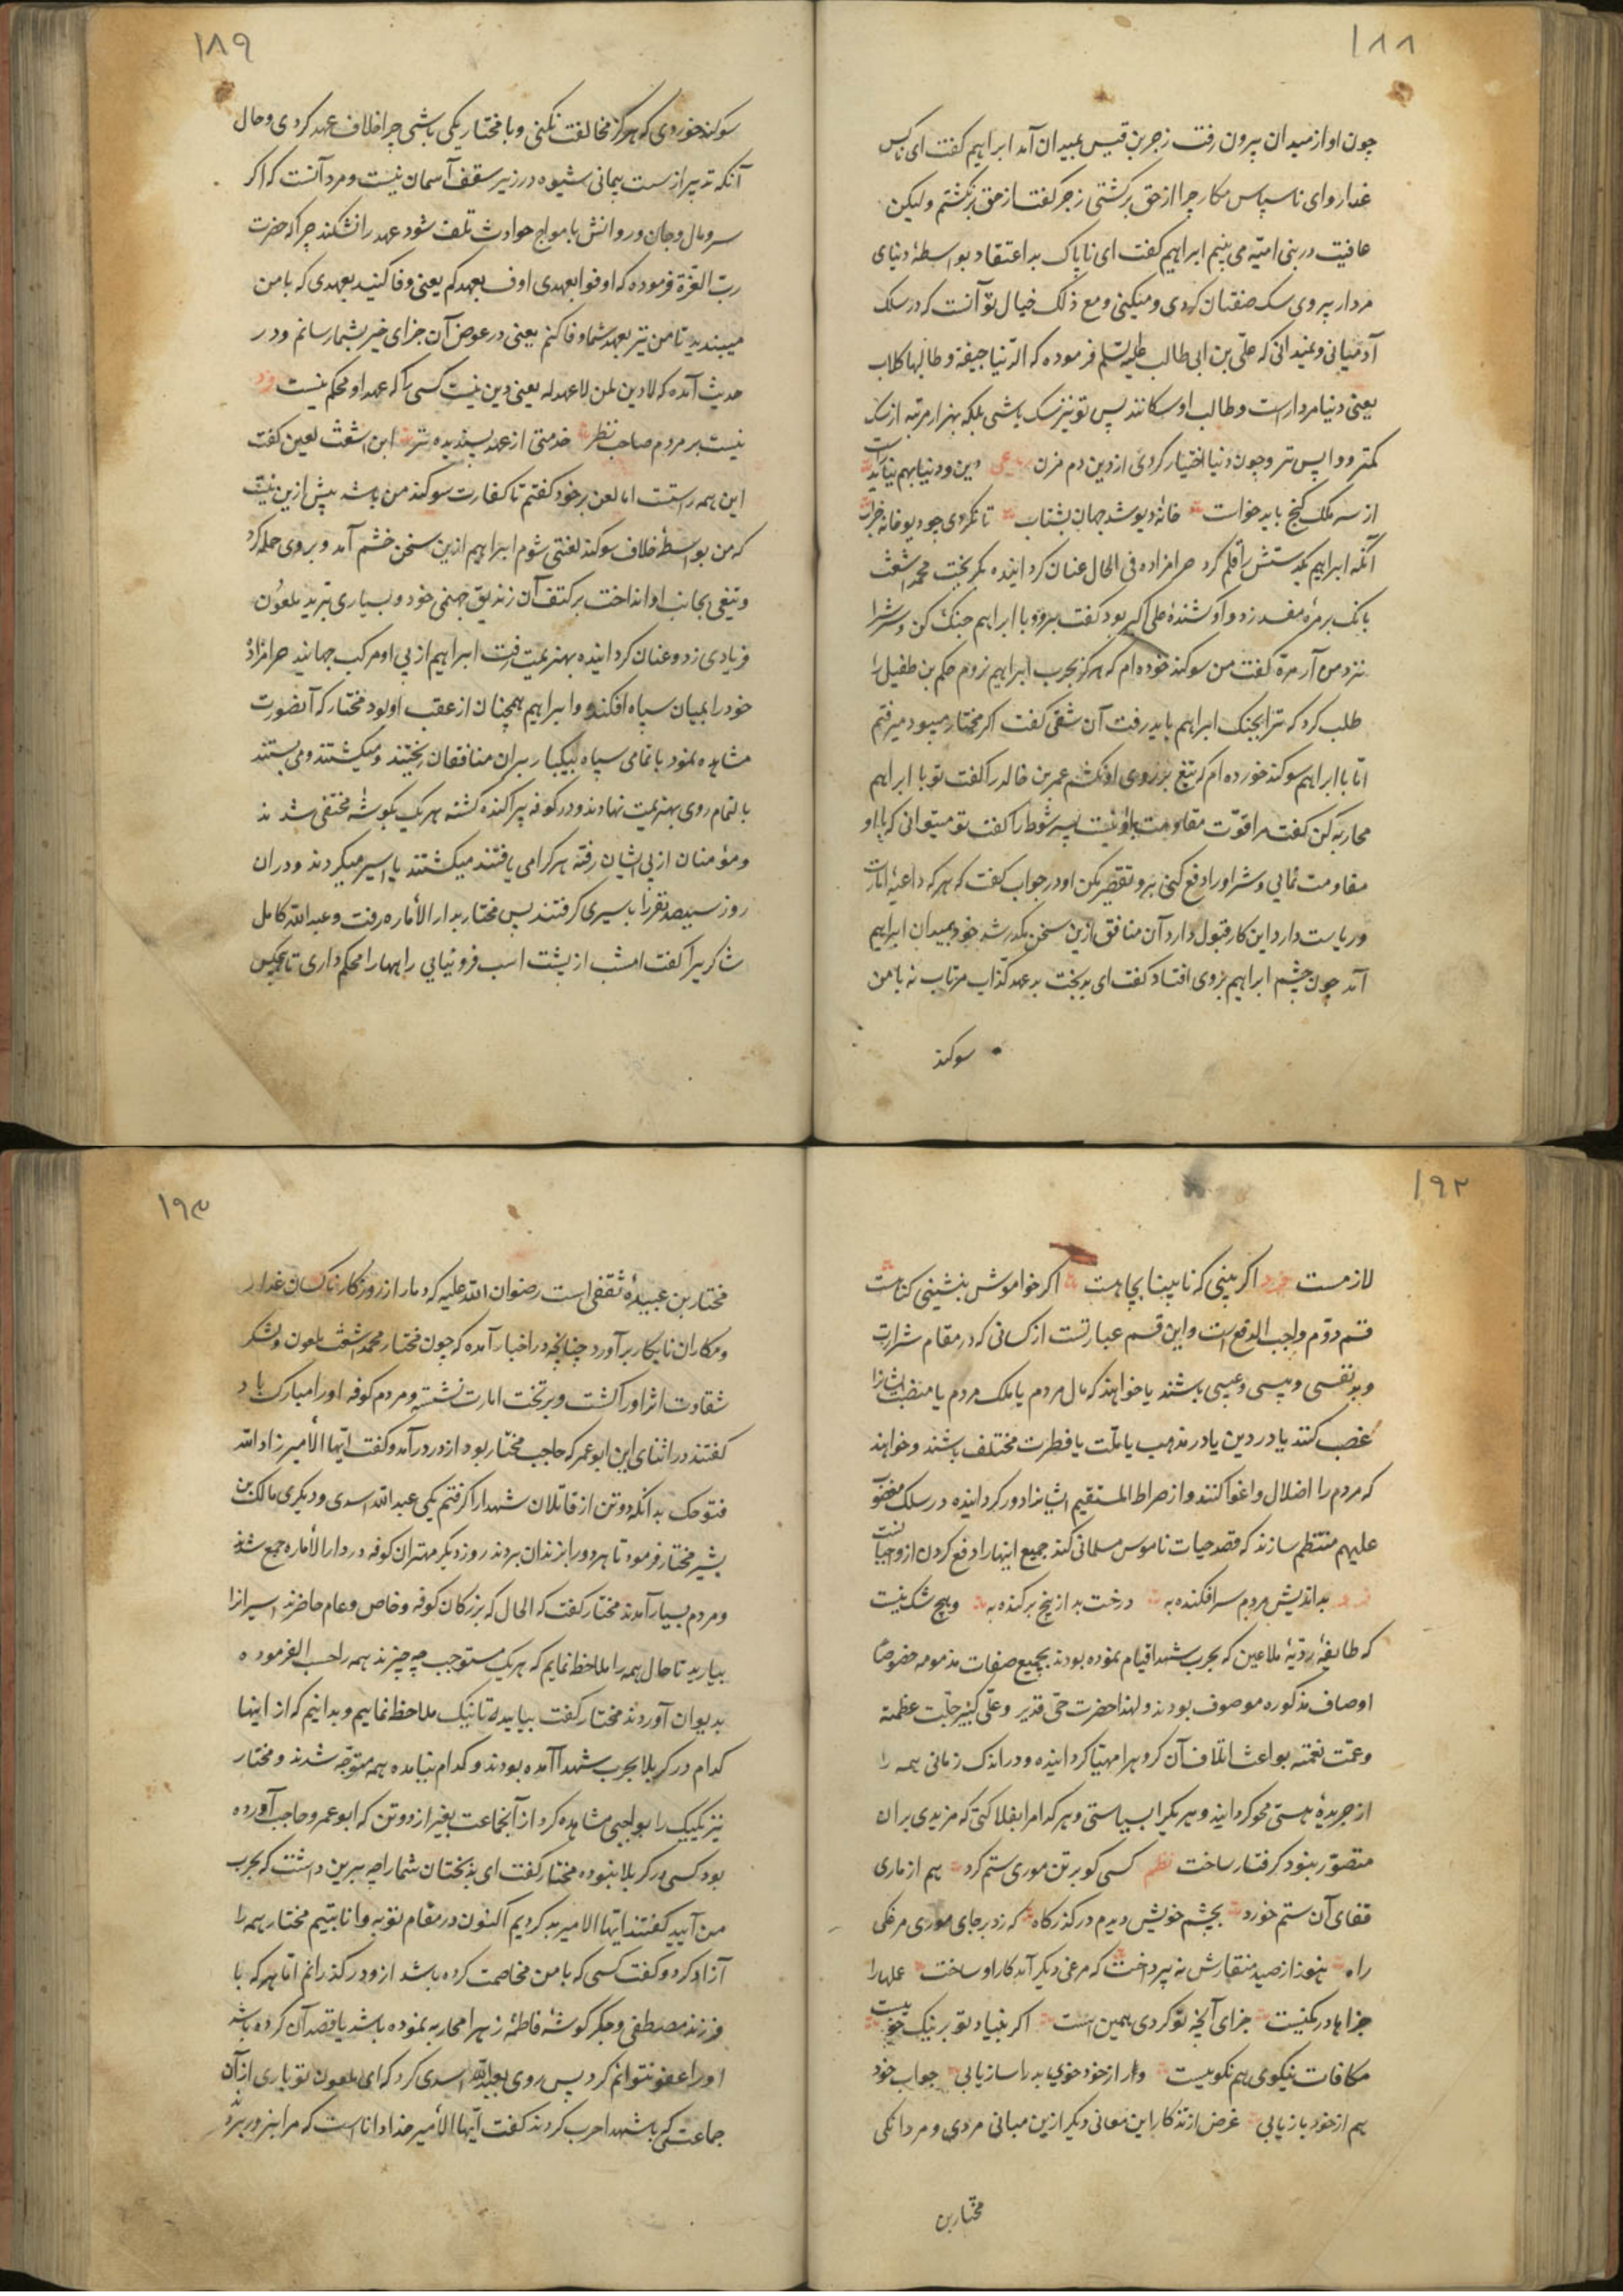 ١٨٨
چون او از میدان بیرون رفت زجر بن قیس بمیدان آمد ابراهیم کفت ای ناکس
غدار و ای ناسپاس مکار چرا از حق برکشتی زجر کفت از حق برنکشتم ولیکن
عافیت در بنی امیّه می بینم ابراهیم کفت ای ناپاک بد اعتقاد بواسطهٔ دنیای
مردار پیروی سک صفتان کردی و میکنی و مع ذلک خیال تو آنست که در سلک
آدمیانی و نمیدانی که علی بن ابی طالب علیه السلم فرموده که الدّنیا جیفة و طالبها کلاب
یعنی دنیا مردار است و طالب او سکانند پس تو نیز سک باشی بلکه بهزار مرتبه از سک
کمتر و واپس تر و چون دنیا اختیار کردی از دین دم مزن دین و دنیا بهم نیاید راست
از سه ملک کنج باید خواست خانهٔ دیو شد جهان بشتاب تا نکردی چو دیو خانه خراب
آنکه ابراهیم یکدستش را قلم کرد حرامزاده فی الحال عنان کرد انیده بکریخت محمد اشعث
بانک بر مرهٔ منقد زد و او کشندهٔ علی اکبر بود کفت برو و با ابراهیم جنک کن و سرش را
نزد من آر مرّة کفت من سوکند خوده ام که هرکز بحرب ابراهیم نروم حکم بن طفیل را
طلب کرد که ترا بجنک ابراهیم باید رفت آن شقی کفت اکر مختار میبود میرفتم
امّا با ابراهیم سوکند خورده ام که تیغ بر روی او نکشم عمر بن خالد را کفت تو با ابراهیم
محاربه کن کفت مرا قوّت مقاومت با او نیست پسر شوط را کفت تو میتوانی که با او
مقاومت نمایی و شر او را دفع کنی برو تقصیر مکن او در جواب کفت که هر که داعیهٔ امارت
و ریاست دارد این کار قبول دارد آن منافق ازین سخن مکدر شد خود بمیدان ابراهیم
آمد چون چشم ابراهیم بروی افتاد کفت ای بدبخت بد عهد کذّاب مرتاب نه با من
سوکند
١٨٩
سوکند خوردی که هرکز مخالفت نکنی و با مختار یکی باشی چرا خلاف عهد کردی و حال
آنکه بدتر از سست پیمانی شیوه در زیر سقف آسمان نیست و مرد آنست که اکر
سر و مال و جان و روانش بامواج حوادث تلف شود عهد را نشکند چرا که حضرت
ربّ العزّة فرموده که اوفوا بعهدی اوف بعهدکم یعنی وفا کنید بعهدی که با من
میبندید تا من نیز بعهد شما وفا کنم یعنی در عوض آن جزای خیر بشما رسانم و در
حدیث آمده که لا دین لمن لا عهد له یعنی دین نیست کسی را که عهد او محکم نیست
نیست بر مردم صاحب نظر خدمتی از عهد پسندیده تر ابن اشعث لعین کفت
این همه راستست اما لعن بر خود کفتم تا کفارت سوکند من باشد بیش ازین نیست
که من بواسطهٔ خلاف سوکند لعنتی شوم ابراهیم ازین سخن خشم آمد و بروی حمله کرد
و تیغی بجانب او انداخت بر کتف آن زندیق جهنمی خود و بسیاری ببرید ملعون
فریادی زد و عنان کرد انیده بهزیمت رفت ابراهیم از پی او مرکب جهانید حرامزاده
خود را بمیان سپاه افکند و ابراهیم همچنان از عقب او بود مختار که آنصورت
مشاهده نمود با تمامی سپاه بیکبار بر آن منافقان ریختند و میکشتند و می بستند
بالتمام روی بهزیمت نهادند و در کوفه پراکنده کشته هر یک بکوشهٔ مختفی شدند
و مؤمنان از پی ایشان رفته هر کرا می یافتند میکشتند یا اسیر میکردند و در آن
روز سیصد نفر را باسیری کرفتند پس مختار بدار الأماره رفت و عبد الله کامل
شاکری را کفت امشب از پشت اسب فرو نیایی راهها را محکم داری تا هیچکس
١٩٢
لازمست اکر بینی که نابینا بچاهست اکر خواموش بنشینی کناهست
قسم دوّم واجب الدفع است و این قسم عبارتست از کسانی که در مقام شرارت
و بد نفسی و باشند یا خواهند که مال مردم یا ملک مردم یا منصب ایشانرا
غصب کنند یا در دین یا در مذهب یا ملّت یا فطرت مختلف باشند و خواهند
که مردم را اضلال و اغوا کنند و از صراط المستقیم ایشانرا دور کرد انیده در سلک مغضوب
علیهم منتظم سازند که قصد حیات ناموس مسلمانی کند جمیع اینها را دفع کردن از واجباتست
بد اندیش مردم سر افکنده به درخت بد از بیخ بر کنده به و هیچ شک نیست
که طایفهٔ ردّیهٔ ملاعین که بحرب شهدا قیام نموده بودند بجمیع صفات مذمومه خصوصا
اوصاف مذکوره موصوف بودند و لهذا حضرت حیّ قدیر و علیّ کبیر جلّت عظمته
و عمّت نعمته بواعث اتلاف آن کروه را مهیّا کرد انیده و در اندک زمانی همه را
از جریدهٔ هستی محو کرد انید و هر یک را بسیاستی و هر کدام را بفلاکتی که مزیدی بر آن
متصوّر نبود کرفتار ساخت نظم کسی کو بر تن موری ستم کرد هم از ماری
قفای آن ستم خورد بچشم خویش دیدم در کذرکاه که زد بر جای موری مرغکی
راه هنوز از صید منقارش نه پرداخت که مرغی دیکر آمد کار او ساخت عملها را
جزاها در کمینست جزای آنچه تو کردی همین است اکر بنیاد تو بر نیک خوییست
مکافات نیکوی هم نکوییست و ار از خود خوی بد را ساز یابی جواب خود
هم از خود باز یابی غرض از تذکار این معانی دیکر ازین مبانی مردی و مردانکی
مختار بن
١٩٣
مختار بن عبیدهٔ ثقفی است رضوان الله علیه که دمار از روزکار ناکسان غدار
و مکاران نابکار برآورد چنانچه در اخبار آمده که چون مختار محمد اشعث ملعون و لشکر
شقاوت اثر او را کشت و بر تخت امارت نشسته و مردم کوفه او را مبارک باد
کفتند در اثنای این ابو عمر که حاجب مختار بود از در درآمد و کفت ایّها الأمیر زاد الله
فتوحک بدانکه دو تن از قاتلان شهدا را کرفتم یکی عبد الله اسدی و دیکری مالک بن
بشیر مختار فرمود تا هر دو را بزندان بردند روز دیکر مهتران کوفه در دار الأماره جمع شدند
و مردم بسیار آمدند مختار کفت که الحال که بزرکان کوفه و خاص و عام حاضرند اسیرانرا
بیارید تا حال همه را ملاحظه نمایم که هر یک مستوجب چه چیزند همه را حسب الفرموده
بدیوان آوردند مختار کفت بیایید تا نیک ملاحظه نماییم و بدانیم که از اینها
کدام در کربلا بحرب شهدا آمده بودند و کدام نیامده همه متوجّه شدند و مختار
نیز یکیک را بواجبی مشاهده کرد از آنجماعت بغیر از دو تن که ابو عمر و حاجب آورده
بود کسی در کربلا نبوده مختار کفت ای بدبختان شما را چه برین داشت که بحرب
من آیید کفتند ایّها الامیر بد کردیم اکنون در مقام توبه و انابتیم مختار همه را
آزاد کرد و کفت کسی که با من مخاصمت کرده باشد ازو درکذرانم امّا هر که با
فرزند مصطفی و جکر کوشهٔ فاطمهٔ زهرا محاربه نموده باشد یا قصد آن کرده باشد
او را عفو نتوانم کرد پس روی بعبد الله اسدی کرد که ای ملعون تو باری از آن
جماعتی که با شهدا حرب کردند کفت ایّها الأمیر خدا داناست که مرا بزور بردند